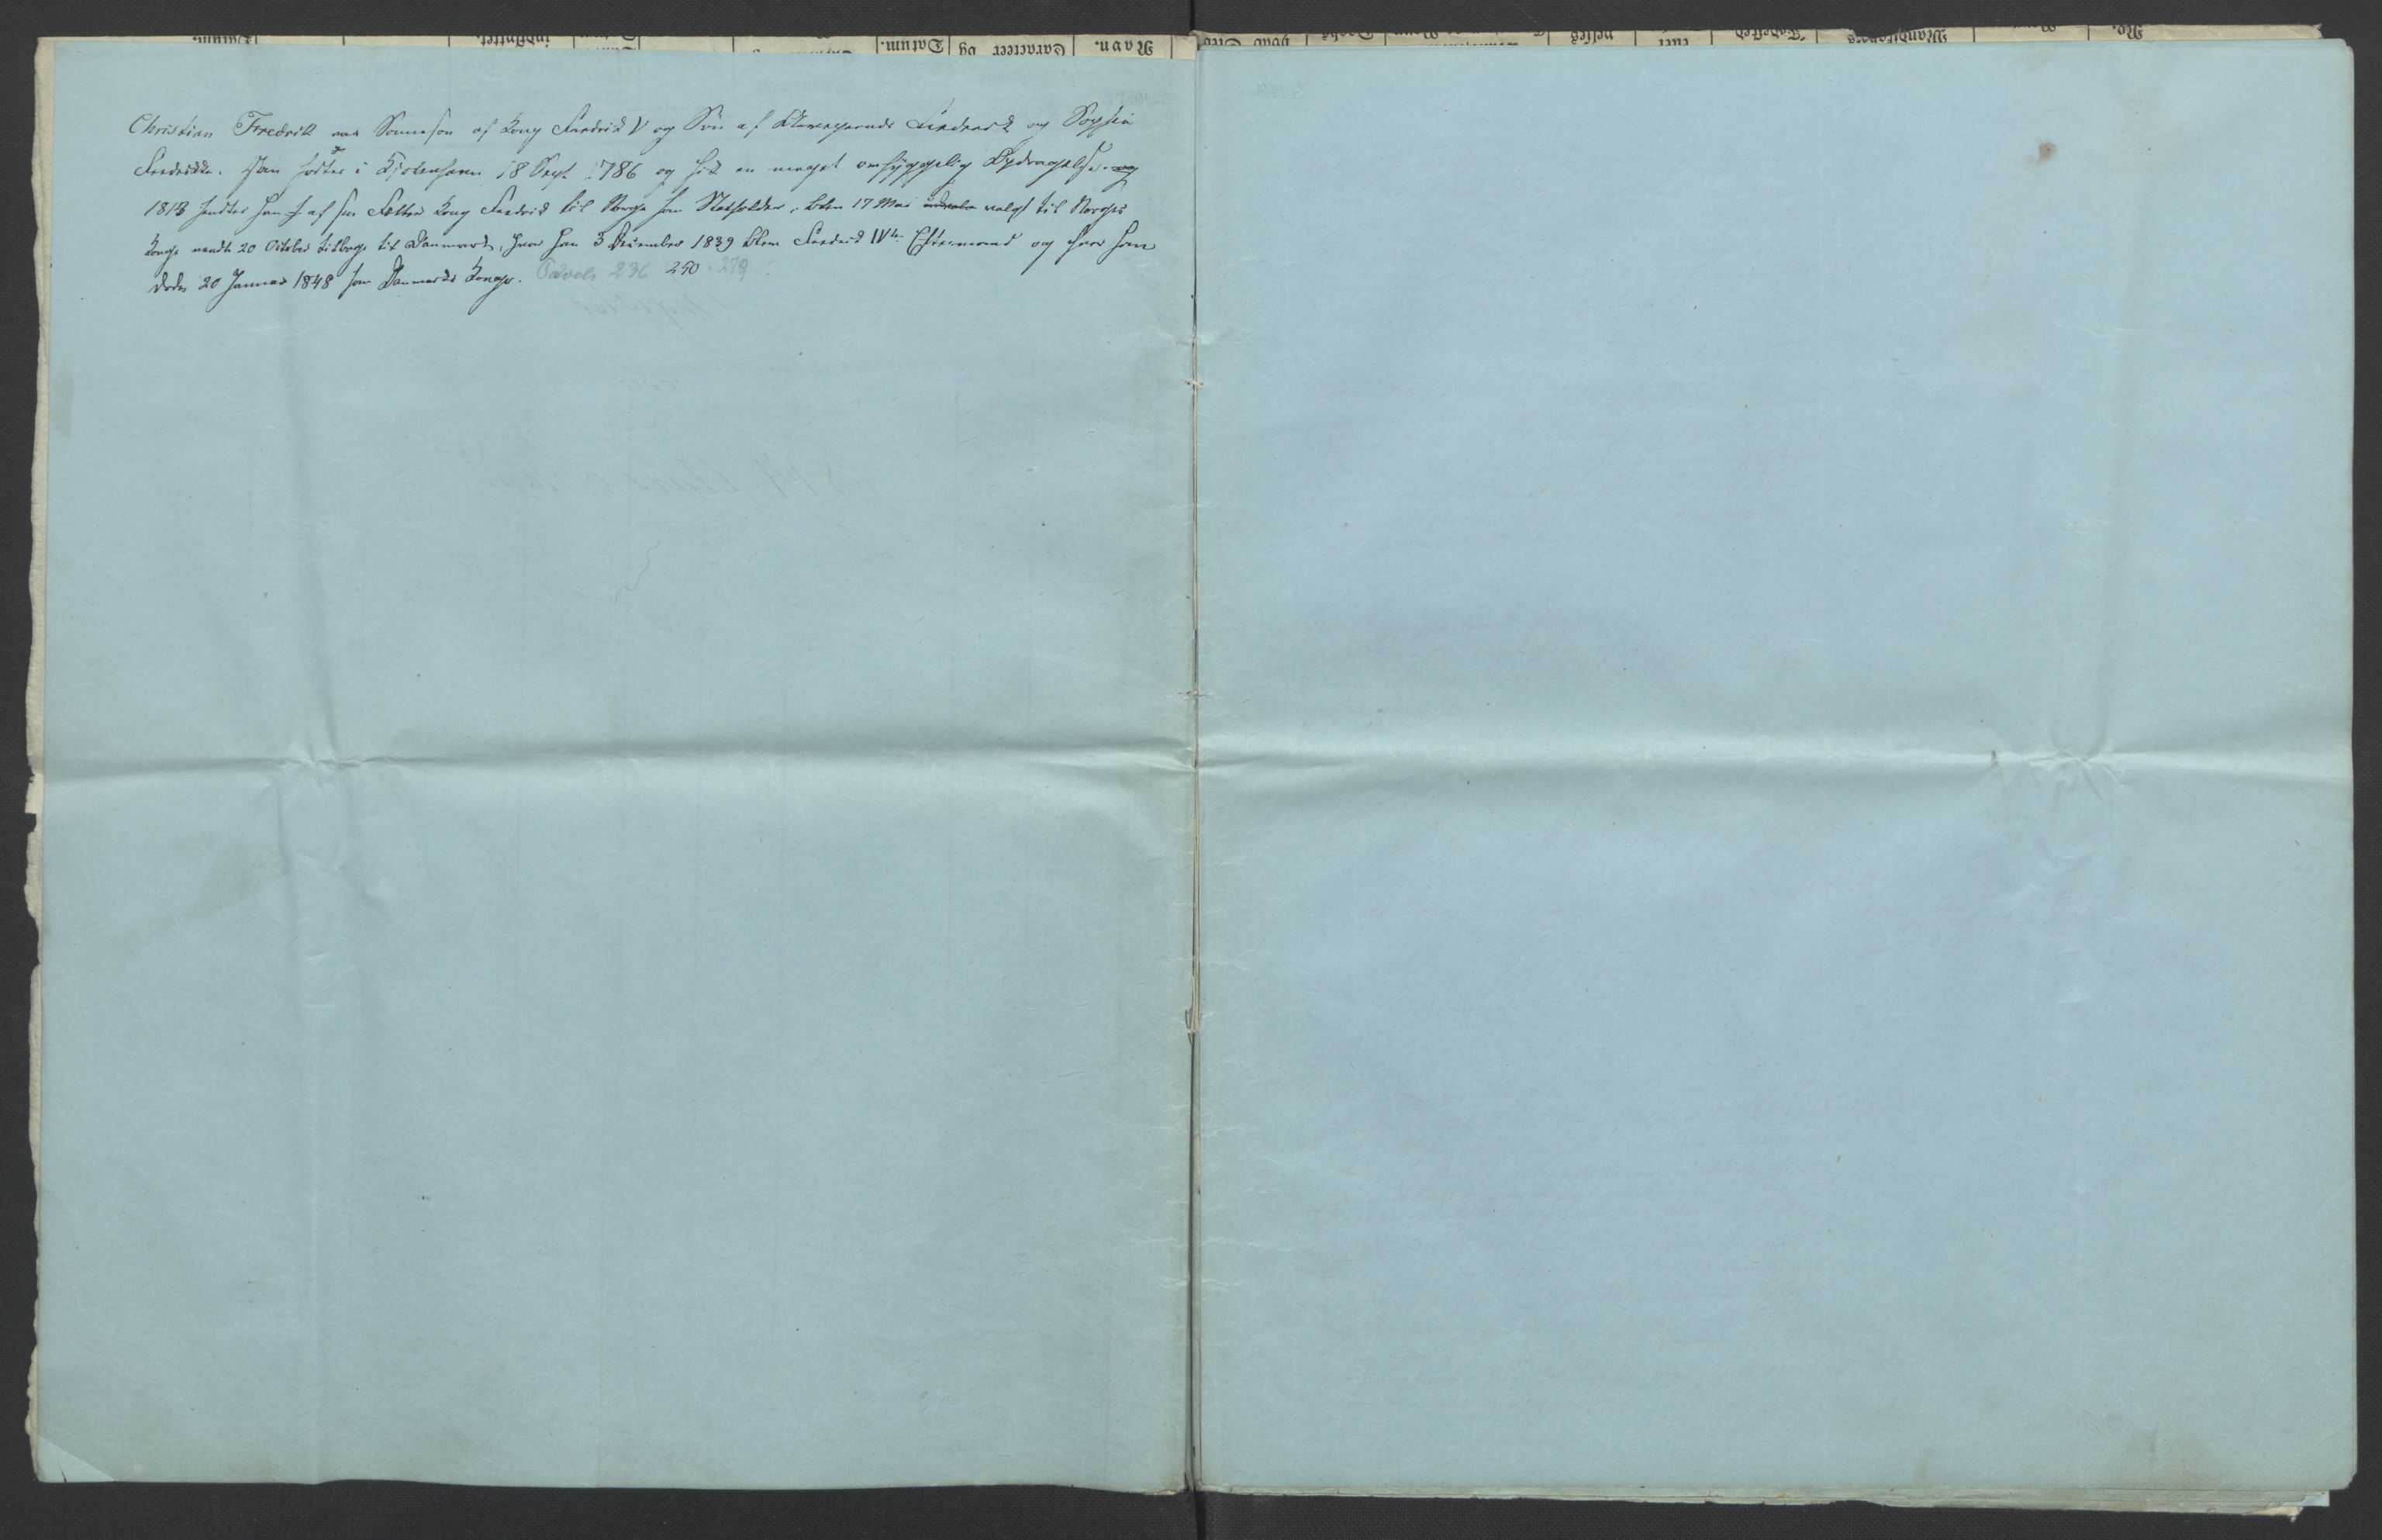 Christian Fredrik var Sønnesøn af Kong Fredrik V og Søn af Arveprinds Frederik og Sophia
Fredrikke. Han fødtes i Kjøbenhavn 18 Sept 1786 og fik en meget omhyggelig Opdragelse. og
1813 sendtes han af sin Fætter Kong Fredrik til Norge som Statholder, blev 17 Mai valgt til Norges
Konge vendte 20 October tilbage til Danmark, hvor han 3 December 1839 blev Fredrik IVtes Eftermand og hvor han
døde 20 Januar 1848 som Danmarks Konge. Tavels 236 250 . 279
Navn.
Caracteer og
Datum.
indflyttet.
Datum.
No.